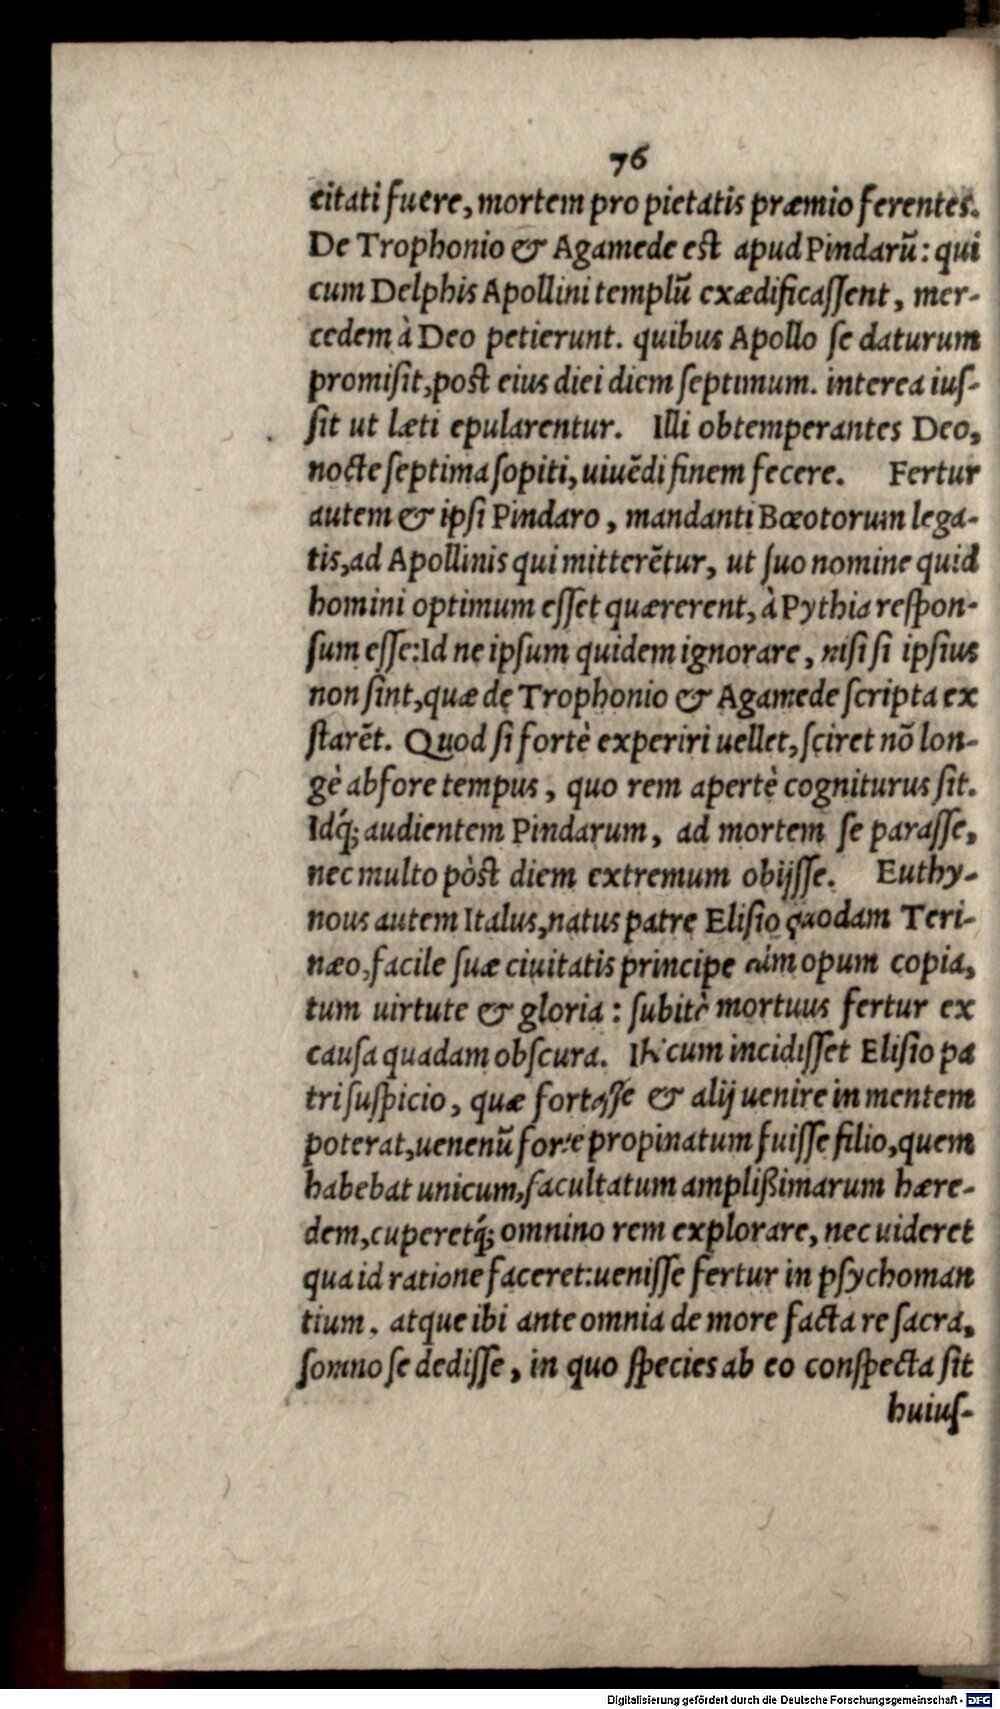 76
citati fuere, mortem pro pietatis præmio ferentes.
De Trophonio & Agamede est apud Pindarũ: qui
cum Delphis Apollini templũ exædificassent, mer-
cedem à Deo petierunt. quibus Apollo se daturum
promisit, post eius diei diem septimum. interea ius-
sit ut læti epularentur. Illi obtemperantes Deo,
nocte septima sopiti, uiuẽdi finem fecere. Fertur
autem & ipsi Pindaro, mandanti Bœotorum lega-
tis, ad Apollinis qui mitterẽtur, ut suo nomine quid
homini optimum esset quærerent, à Pythia respon-
sum esse: Id ne ipsum quidem ignorare, nisi si ipsius
non sint, quæ de Trophonio & Agamede scripta ex
starẽt. Quod si fortè experiri uellet, sciret nõ lon-
gè abfore tempus, quo rem apertè cogniturus sit.
Idq́; audientem Pindarum, ad mortem se parasse,
nec multo pòst diem extremum obijsse. Euthy-
nous autem Italus, natus patre Elisio quodam Teri-
næo, facile suæ ciuitatis principe cùm opum copia,
tum uirtute & gloria: subitò mortuus fertur ex
causa quadam obscura. Ibi cum incidisset Elisio pa
tri suspicio, quæ fortasse & alij uenire in mentem
poterat, uenenũ forte propinatum fuisse filio, quem
habebat unicum, facultatum amplißimarum hære-
dem, cuperetq́; omnino rem explorare, nec uideret
qua id ratione faceret: uenisse fertur in psychoman
tium. atque ibi ante omnia de more facta re sacra,
somno se dedisse, in quo species ab eo conspecta sit
huius-
Digitalisierung gefördert durch die Deutsche Forschungsgemeinschaft - DFG